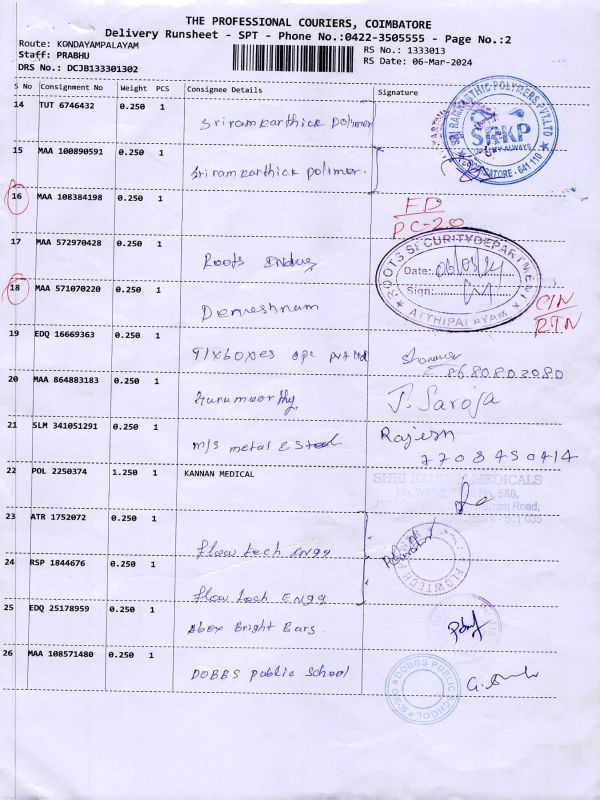 THE PROFESSIONAL COURIERS, COIMBATORE
Delivery Runsheet - SPT - Phone No.:0422-3505555 - Page No.:2
Route: KONDAYAMPALAYAM
RS No.: 1333013
Staff: PRABHU
RS Date: 06-Mar-2024
DRS No.: DCJB133301302
S No Consignment No Weight PCS Consignee Details Signature
14 TUT 6746432 0.250 1
Sriramkarthick polimer
SRI RAMKARTHIC POLYMERS PVT LTD
SRKP
COIMBATORE - 641 110
15 MAA 100890591 0.250 1
Sriramkarthick polimer.
16 MAA 108384198 0.250 1
PC-20
17 MAA 572970428 0.250 1
Roots
ROOTS SECURITY DEPARTMENT
Date: 06/03/24
Sign:
ATTHIPALAYAM
18 MAA 571070220 0.250 1
RTN
19 EDQ 16669363 0.250 1
8680803080
20 MAA 864883183 0.250 1
J. Saroja
21 SLM 341051291 0.250 1
m/s metal & Steel
Rajesh
7708450414
22 POL 2250374 1.250 1 KANNAN MEDICAL
MEDICALS
Road,
23 ATR 1752072 0.250 1
flow tech engg
24 RSP 1844676 0.250 1
flow tech engg
FLOWTECH
25 EDQ 25178959 0.250 1
Abex Bright Bars.
26 MAA 108571480 0.250 1
DOBBS public school
DOBBS PUBLIC SCHOOL